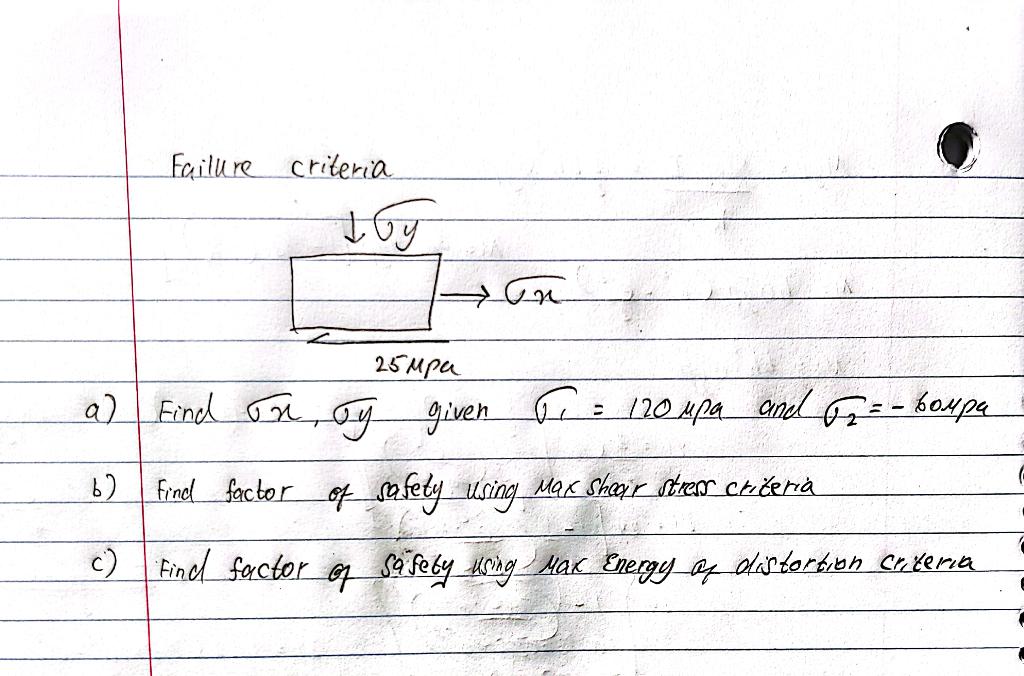 Failure criteria
↓ σy
→ σx
25 Mpa
a) Find σx, σy given σ1 = 120 Mpa and σ2 = - 60Mpa
b) Find factor of safety using Max Shear stress criteria
c) Find factor of safety using Max Energy of distortion criteria